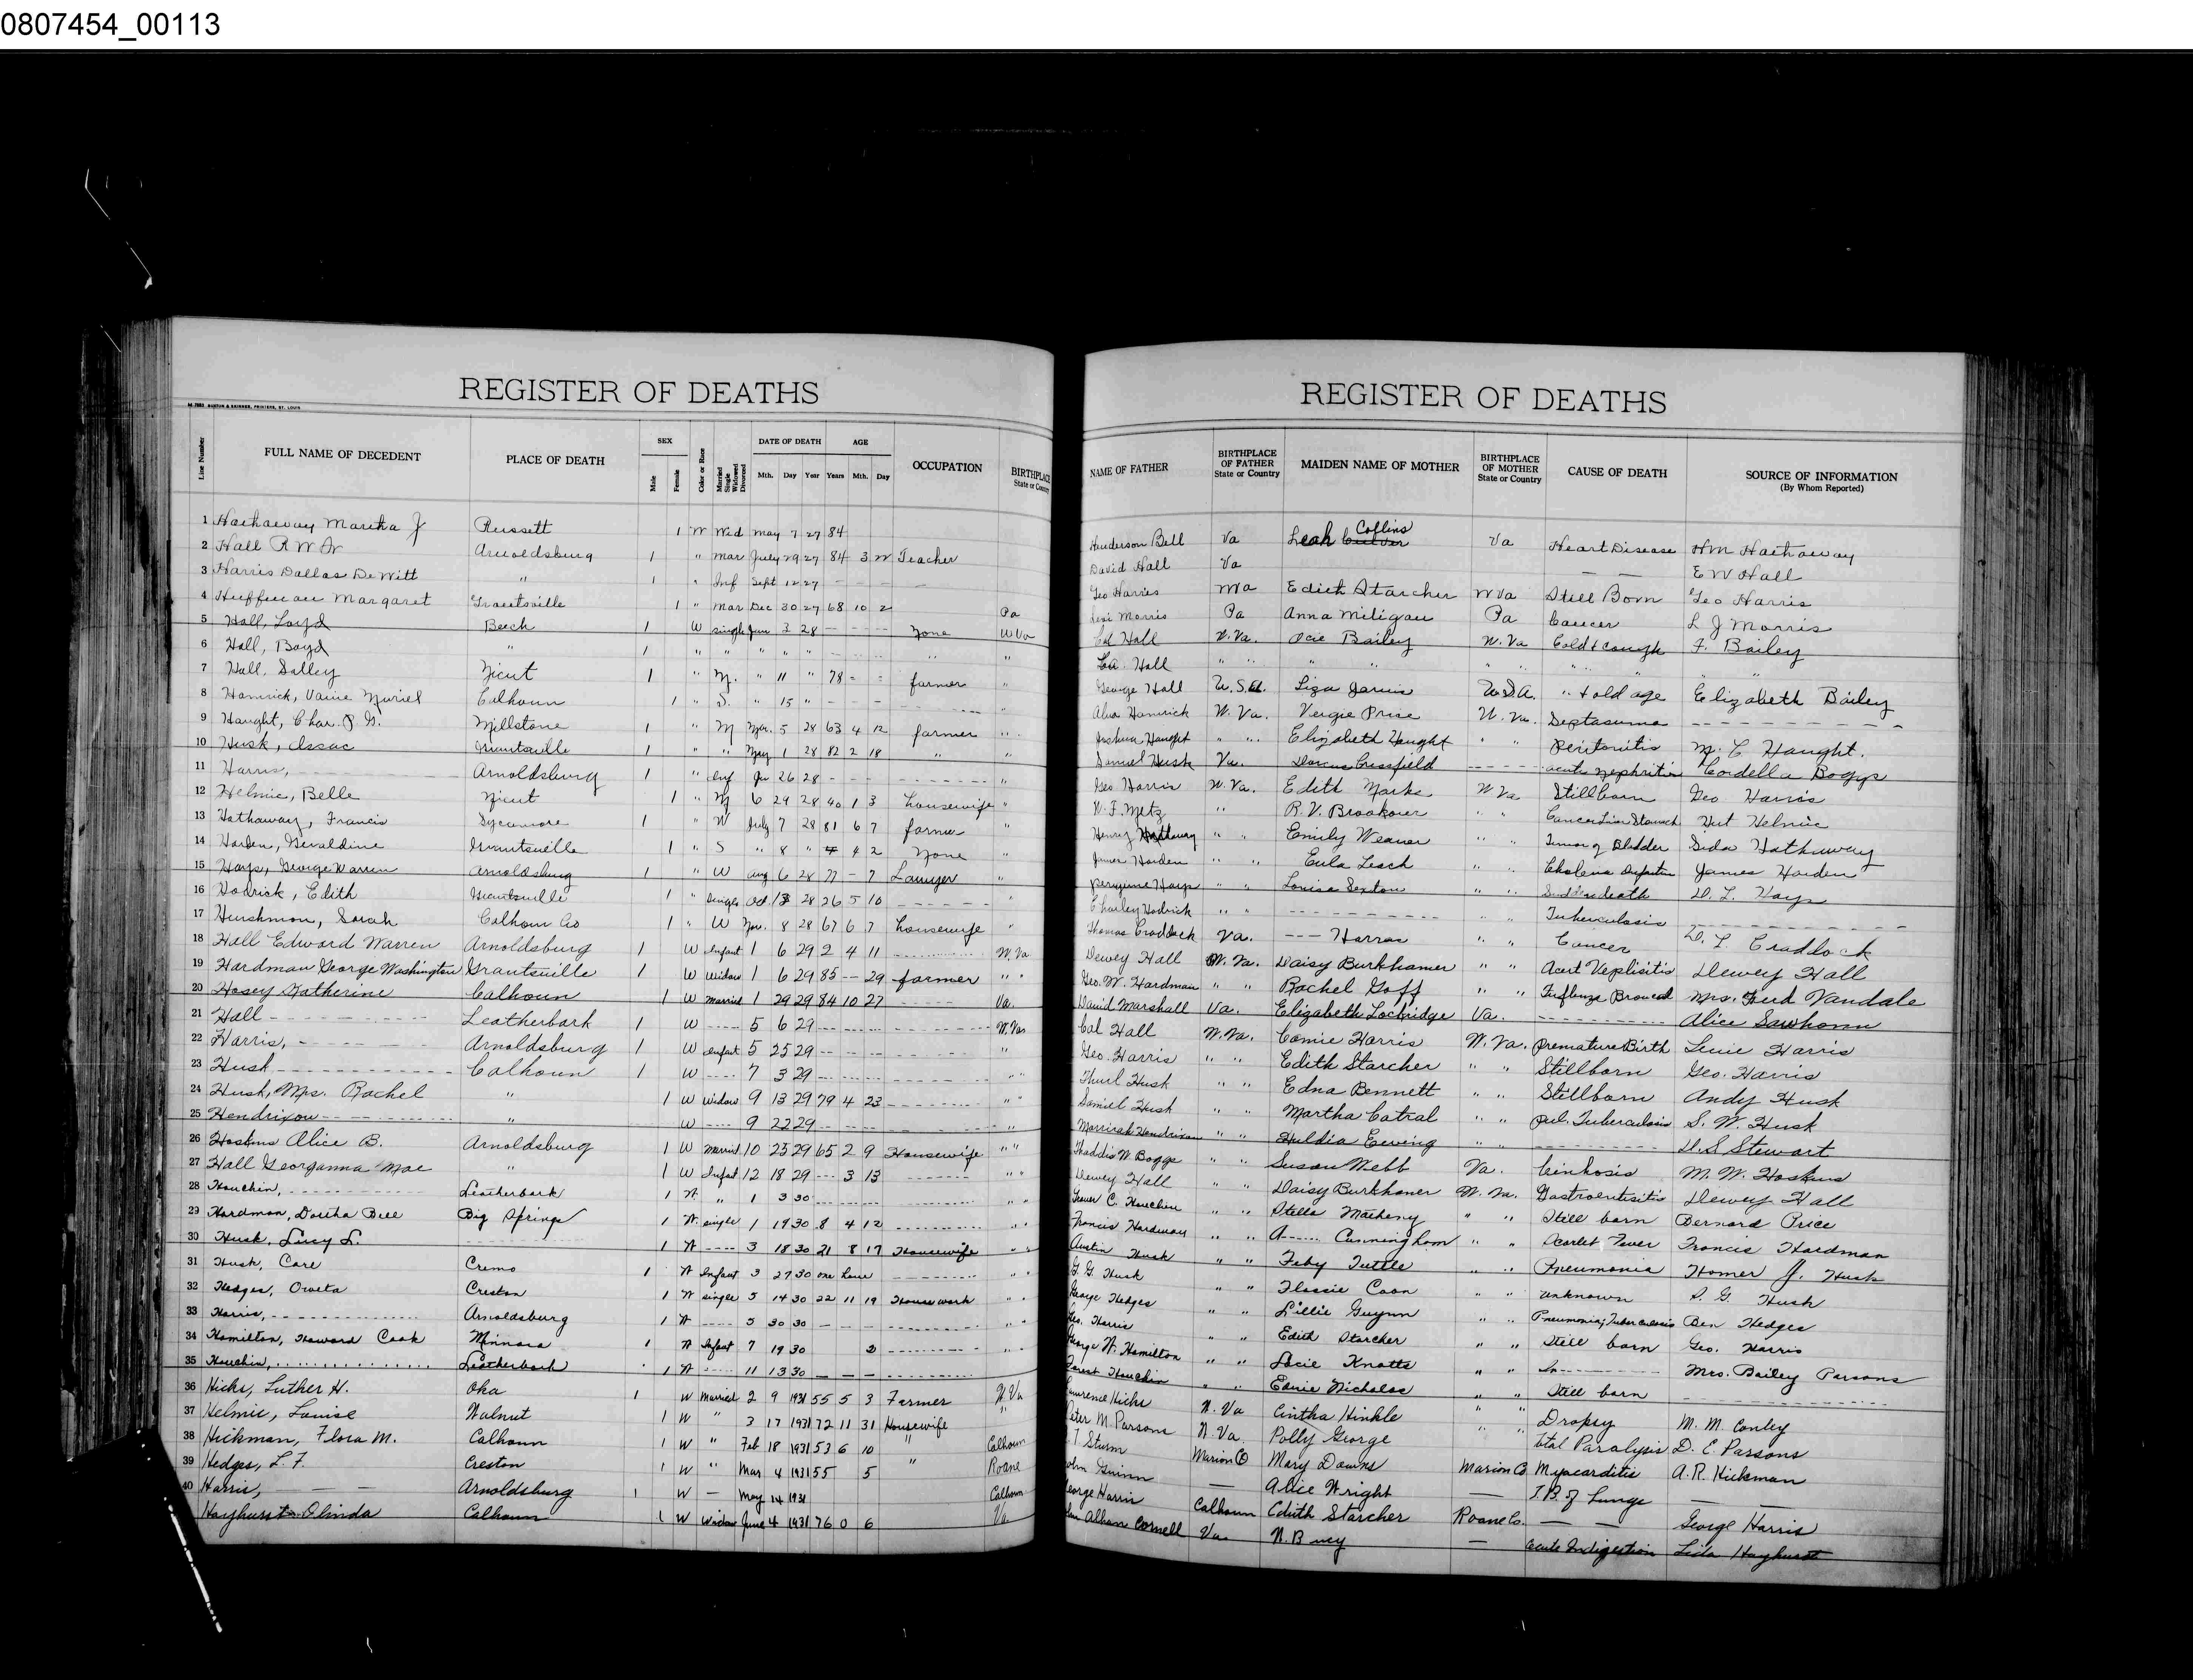 0807454_00113
REGISTER OF DEATHS
REGISTER OF DEATHS
Line Number FULL NAME OF DECEDENT PLACE OF DEATH SEX Male Female Color or Race Married Single Widowed Divorced DATE OF DEATH Mth. Day Year AGE Years Mth. Day OCCUPATION BIRTHPLACE State or Country
NAME OF FATHER BIRTHPLACE OF FATHER State or Country MAIDEN NAME OF MOTHER BIRTHPLACE OF MOTHER State or Country CAUSE OF DEATH SOURCE OF INFORMATION (By Whom Reported)
1 Hathaway Martha J Russett 1 W Wid May 7 27 84 Henderson Bell Va Leah Collins Va Heart Disease Wm Hathaway
2 Hall R W Dr Arnoldsburg 1 " Mar July 29 27 84 3 Teacher David Hall Va — — E W Hall
3 Harris Dallas DeWitt " 1 " Inf Sept 12 27 – – – Geo Harries Edith Starcher W Va Still Born Geo Harris
4 Huffman Margaret Grantsville 1 " Mar Dec 30 27 68 10 2 Pa Levi Morris Pa Anna Miligan Pa Cancer L J Morris
5 Hall, Loyd Beech 1 W single Jan 3 28 – – – None W Va Cal Hall W. Va. Ocie Bailey W. Va Cold & Cough F. Bailey
6 Hall, Boyd " 1 " " " " " " " Hall " " " " " " " "
7 Hall, Salley Nicut 1 " M. " 11 " 78 - - farmer " George Hall U.S.A. Liza Jarvis U.S.A. " & old age Elizabeth Bailey
8 Hamrick, Vaine Muriel Calhoun 1 " S. " 15 " - - - " Alva Hamrick W. Va. Vergie Price W. Va.
9 Haught, Millstone 1 " M Mar. 5 28 63 4 12 farmer " Joshua Haught " " Elizabeth Haught " " Peritonitis M. C Haught.
10 Husk, Issac Grantsville 1 " " May 1 28 82 2 18 " " Samuel Husk Va. Dorcus Crissfield acute Nephritis Cordella Boggs
11 Harris, Arnoldsburg 1 " inf Ju 26 28 - - - " Geo Harris W. Va. Edith Marks W Va Stillborn Geo. Harris
12 Helmic, Belle Nicut 1 " M 6 29 28 40 1 3 housewife " W. F. Metz " R. V. Brookover " " Hut Helmic
13 Hathaway, Francis Sycamore 1 " W July 7 28 81 6 7 farmer " Henry Hathaway " " Emily Weaver " " Tumor of Bladder Sida Hathaway
14 Harden, Geraldine Grantsville 1 " S " 8 " 4 2 None " James Harden " " Eula Leach " " James Harden
15 Hays, George Warren Arnoldsburg 1 " W Aug 6 28 77 - 7 Lawyer " Hays " " Louisa Sexton " " Sudden death D. L. Hays
16 Hodrick, Edith Grantsville 1 " Single Oct 13 28 26 5 10 " Charley Hodrick " " " " Tuberculosis
17 Hershmon, Sarah Calhoun Co 1 " W Nov. 8 28 67 6 7 housewife " Thomas Craddock Va. --- Harras " " Cancer D. L. Craddock
18 Hall Edward Warren Arnoldsburg 1 W Infant 1 6 29 2 4 11 W Va Dewey Hall W. Va. Daisy Burkhamer " " Dewey Hall
19 Hardman George Washington Grantsville 1 W Widow 1 6 29 85 -- 29 farmer " " Geo. W. Hardman " " Rachel Goff " " Mrs. Vandale
20 Hosey Katherine Calhoun 1 W married 1 29 29 84 10 27 Va. David Marshall Va. Elizabeth Lockridge Va. Alice
21 Hall Leatherbark 1 W 5 6 29 W. Va Cal Hall W. Va. Comie Harris W. Va. Premature Birth Harris
22 Harris, Arnoldsburg 1 W Infant 5 25 29 " Geo. Harris " " Edith Starcher " " Stillborn Geo. Harris
23 Husk Calhoun 1 W 7 3 29 " " Thurl Husk " " Edna Bennett " " Stillborn Andy Husk
24 Husk, Mrs. Rachel " 1 W Widow 9 13 29 79 4 23 " " Samiel Husk " " Martha Catral " " Pul. Tuberculosis S. W. Husk
25 Hendrixon " W 9 22 29 " Hendrixon " " Huldia Ewing " " D. S Stewart
26 Hoskins Alice B. Arnoldsburg 1 W Married 10 25 29 65 2 9 Housewife " " Thaddis W Boggs " " Susan Webb Va. M. W. Hoskins
27 Hall Georganna Mae " 1 W Infant 12 18 29 3 13 " " Dewey Hall " " Daisy Burkhamer W. Va. Dewey Hall
28 Houchin, Leatherbark 1 W " 1 3 30 " " C. Houchin " " Stella Matheny " " Still born Bernard Price
29 Hardman, Dortha Bell Big Springs 1 W single 1 19 30 8 4 12 " " Francis Hardman " " A Cunningham " " Scarlet Fever Francis Hardman
30 Husk, Lucy L. 1 W 3 18 30 21 8 17 Housewife " " Austin Husk " " Feby Tuttle " " Pneumonia Homer J. Husk
31 Husk, Care Cremo 1 W Infant 3 27 30 one hour " " G. G. Husk " " Flossie Coon " " unknown Husk
32 Hedges, Oweta Creston 1 W single 5 14 30 22 11 19 Housework " " George Hedges " " Lillie Guynn " " Pneumonia; Tuberculosis Ben Hedges
33 Harris, Arnoldsburg 1 W 5 30 30 " " Geo. Harris " " Edith Starcher " " Still born Geo. Harris
34 Hamilton, Howard Cook Minnora 1 W Infant 7 19 30 2 " " George W. Hamilton " " Locie Knotts " " Mrs. Bailey Parsons
35 Houchin, Leatherbark 1 W 11 13 30 Houchin " " Ernie Nicholas " " Still born
36 Hicks, Luther H. Oka 1 W Married 2 9 1931 55 5 3 Farmer W Va Lawrence Hicks W. Va Cintha Hinkle " " Dropsy M. M. Conley
37 Helmic, Louise Walnut 1 W " 3 17 1931 72 11 31 Housewife " Peter M. Parsons W. Va. Polly George Total Paralysis D. E. Parsons
38 Hickman, Flora M. Calhoun 1 W " Feb 18 1931 53 6 10 " Calhoun T. Sturm Marion Co Mary Downs Marion Co Myocarditis A. R. Hickman
39 Hedges, L. F. Creston 1 W " Mar 4 1931 55 5 " Roane John Guinn — Alice Wright — T. B. of Lungs
40 Harris, Arnoldsburg 1 W — May 14 1931 Calhoun George Harris Calhoun Edith Starcher Roane Co. — — George Harris
Hayhurst Olinda Calhoun 1 W Widow June 4 1931 76 0 6 Va. Cornell Va. — Acute Indigestion Lida Hayhurst